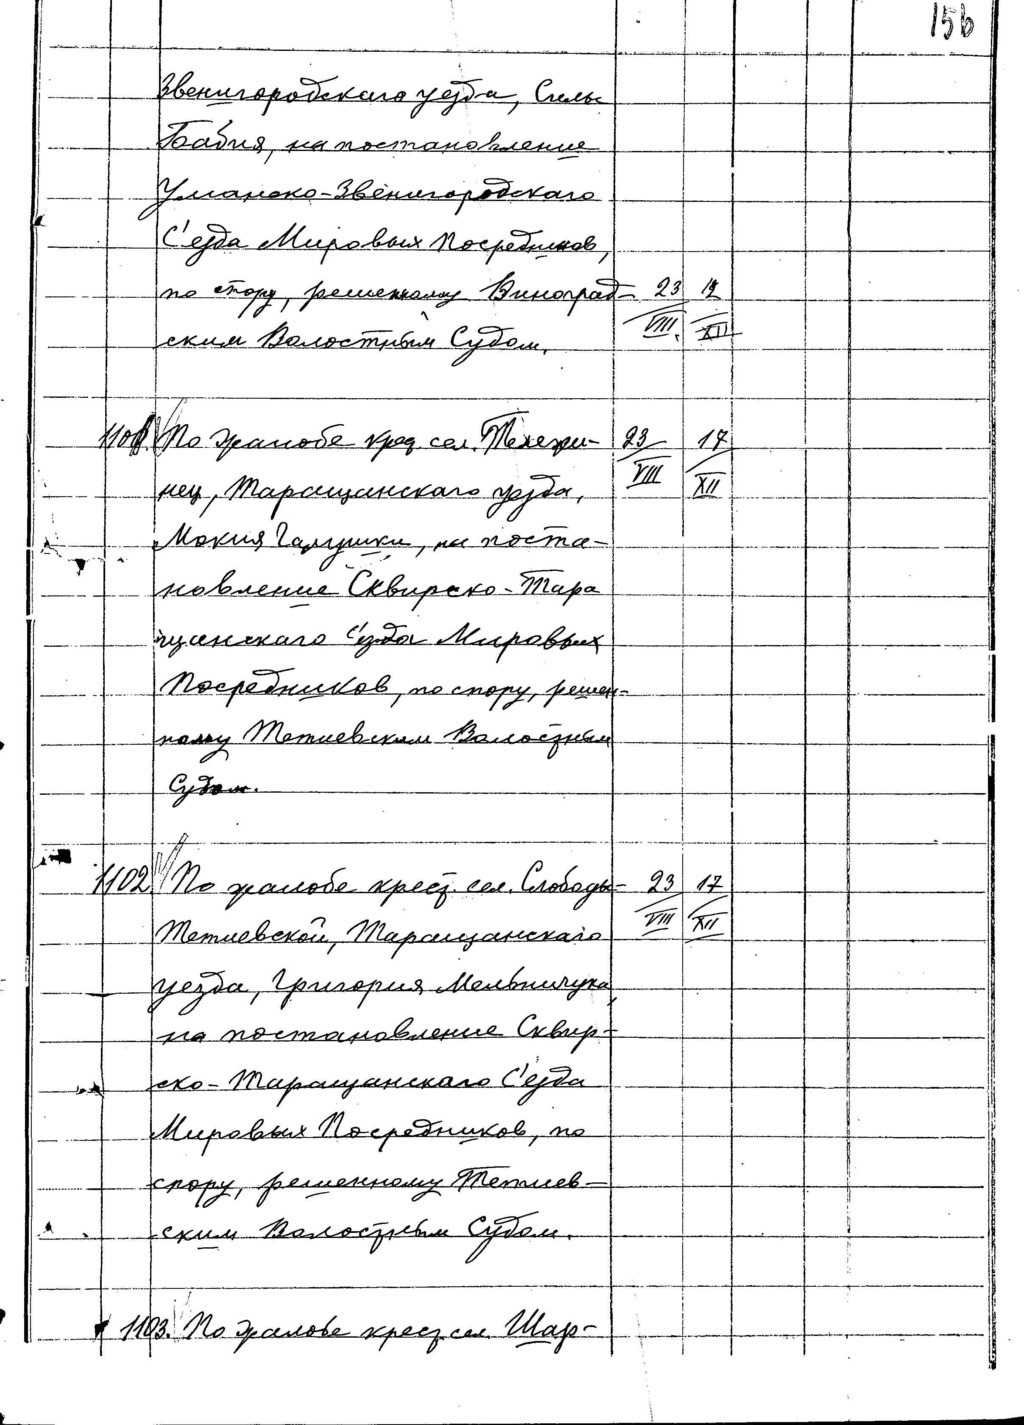 156
Звенигородскаго уезда, Силы
Бабия, на постановление
Уманско-Звенигородскаго
С'езда Мировых Посредников,
по спору, решенному Виноград- 23 12
VIII XII
ским Волостным Судом.
1101. По жалобе крес. сел. Тележи- 23 17
VIII XII
нец, Таращанскаго уезда,
Мокия Галушки, на поста-
новление Сквирско-Тара
щанскаго С'езда Мировых
Посредников, по спору, решен-
ному Тетиевским Волостным
Судом.
1102. По жалобе крест. сел. Слободы- 23 17
VIII XII
Тетиевской, Таращанскаго
уезда, Григория Мельничука,
на постановление Сквир-
ско-Таращанскаго С'езда
Мировых Посредников, по
спору, решенному Тетиев-
ским Волостным Судом.
1103. По жалобе крест. сел. Шар-